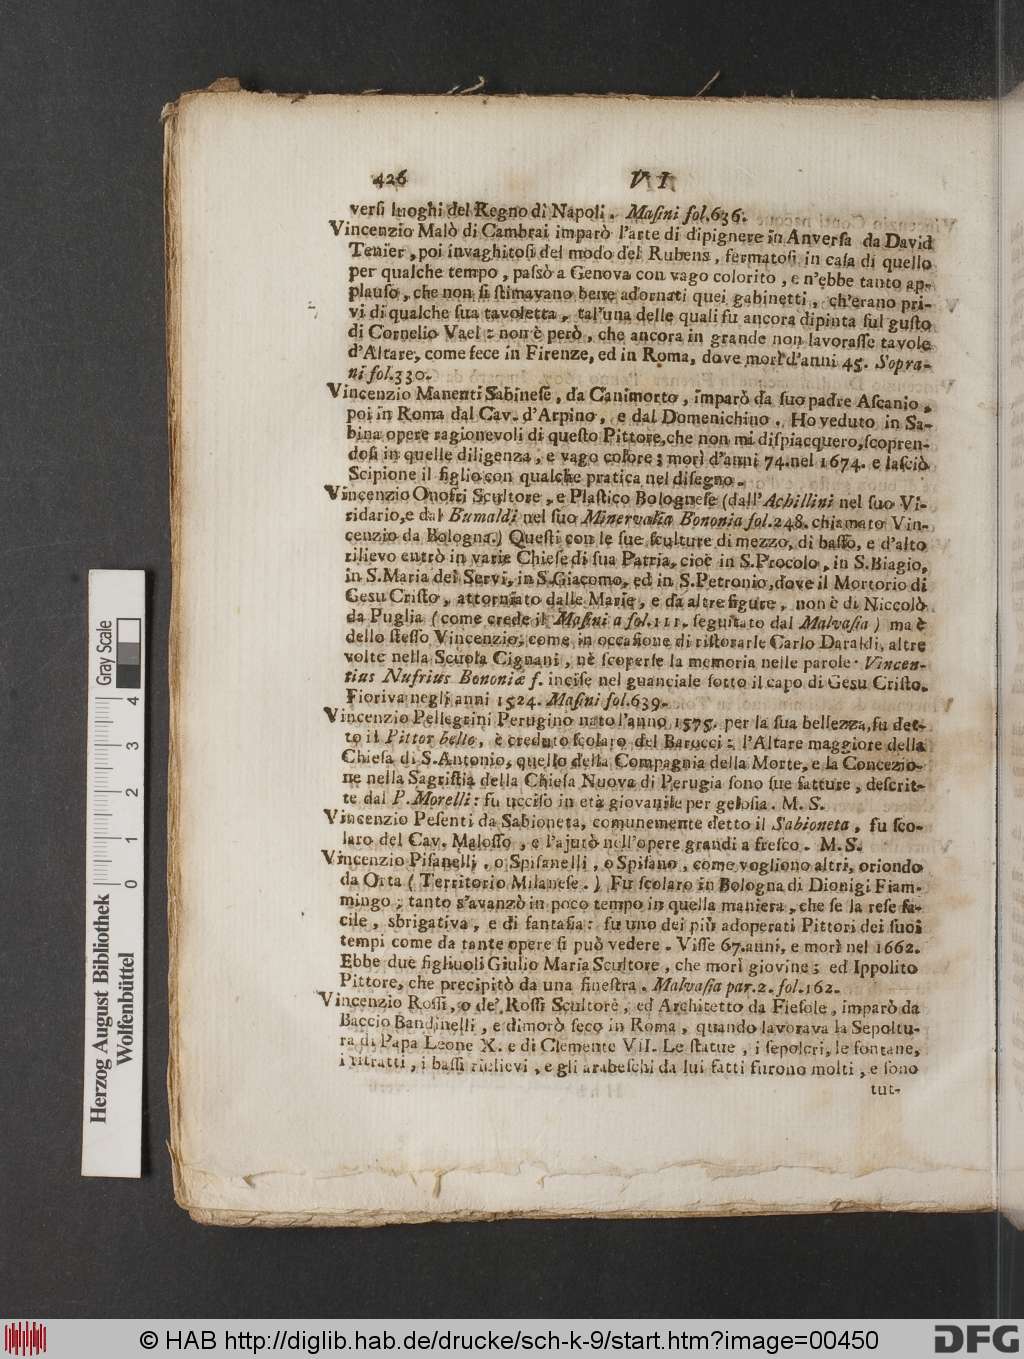 426 V I
verſi luoghi del Regno di Napoli. Maſini fol.636.
Vincenzio Malò di Cambrai imparò l'arte di dipignere in Anverſa da David
Tenier, poi invaghitoſi del modo del Rubens, fermatoſi in caſa di quello
per qualche tempo, paſsò a Genova con vago colorito, e n'ebbe tanto ap-
plauſo, che non ſi ſtimavano bene adornati quei gabinetti, ch'erano pri-
vi di qualche ſua tavoletta, tal'una delle quali fu ancora dipinta ſul guſto
di Cornelio Vael: non è però, che ancora in grande non lavoraſſe tavole
d'Altare, come fece in Firenze, ed in Roma, dove morì d'anni 45. Sopra-
ni fol.330.
Vincenzio Manenti Sabineſe, da Canimorto, imparò da ſuo padre Aſcanio,
poi in Roma dal Cav. d'Arpino, e dal Domenichino. Ho veduto in Sa-
bina opere ragionevoli di queſto Pittore, che non mi diſpiacquero, ſcopren-
doſi in quelle diligenza, e vago colore; morì d'anni 74. nel 1674. e laſciò
Scipione il figlio con qualche pratica nel diſegno.
Vincenzio Onofri Scultore, e Plaſtico Bologneſe (dall' Achillini nel ſuo Vi-
ridario, e dal Bumaldi nel ſuo Minervalia Bononia fol.248. chiamato Vin-
cenzio da Bologna.) Queſti con le ſue ſculture di mezzo, di baſſo, e d'alto
rilievo entrò in varie Chieſe di ſua Patria, cioè in S.Procolo, in S.Biagio,
in S.Maria dei Servi, in S.Giacomo, ed in S.Petronio, dove il Mortorio di
Gesu Criſto, attorniato dalle Marie, e da altre figure, non è di Niccolò
da Puglia (come crede il Maſini a fol.111. ſeguitato dal Malvaſia) ma è
dello ſteſſo Vincenzio, come in occaſione di riſtorarle Carlo Daraldi, altre
volte nella Scuola Cignani, nè ſcoperſe la memoria nelle parole: Vincen-
tius Nufrius Bononiæ f. inciſe nel guanciale ſotto il capo di Gesu Criſto.
Fioriva negli anni 1524. Maſini fol.639.
Vincenzio Pellegrini Perugino nato l'anno 1575. per la ſua bellezza, fu det-
to il Pittor bello, è creduto ſcolaro del Barocci: l'Altare maggiore della
Chieſa di S.Antonio, quello della Compagnia della Morte, e la Concezio-
ne nella Sagriſtia della Chieſa Nuova di Perugia ſono ſue fatture, deſcrit-
te dal P.Morelli: fu ucciſo in età giovanile per geloſia. M. S.
Vincenzio Peſenti da Sabioneta, comunemente detto il Sabioneta, fu ſco-
laro del Cav. Maloſſo, e l'ajutò nell'opere grandi a freſco. M. S.
Vincenzio Piſanelli, o Spiſanelli, o Spiſano, come vogliono altri, oriondo
da Orta (Territorio Milaneſe.) Fu ſcolaro in Bologna di Dionigi Fiam-
mingo; tanto s'avanzò in poco tempo in quella maniera, che ſe la reſe fa-
cile, sbrigativa, e di fantaſia: fu uno dei più adoperati Pittori dei ſuoi
tempi come da tante opere ſi può vedere. Viſſe 67. anni, e morì nel 1662.
Ebbe due figliuoli Giulio Maria Scultore, che morì giovine; ed Ippolito
Pittore, che precipitò da una fineſtra. Malvaſia par.2. fol.162.
Vincenzio Roſſi, o de' Roſſi Scultore, ed Architetto da Fieſole, imparò da
Baccio Bandinelli, e dimorò ſeco in Roma, quando lavorava la Sepoltu-
ra di Papa Leone X. e di Clemente VII. Le ſtatue, i ſepolcri, le fontane,
i ritratti, i baſſi rilievi, e gli arabeſchi da lui fatti furono molti, e ſono
tut-
Gray Scale
0 1 2 3 4
Herzog August Bibliothek
Wolfenbüttel
© HAB http://diglib.hab.de/drucke/sch-k-9/start.htm?image=00450
DFG